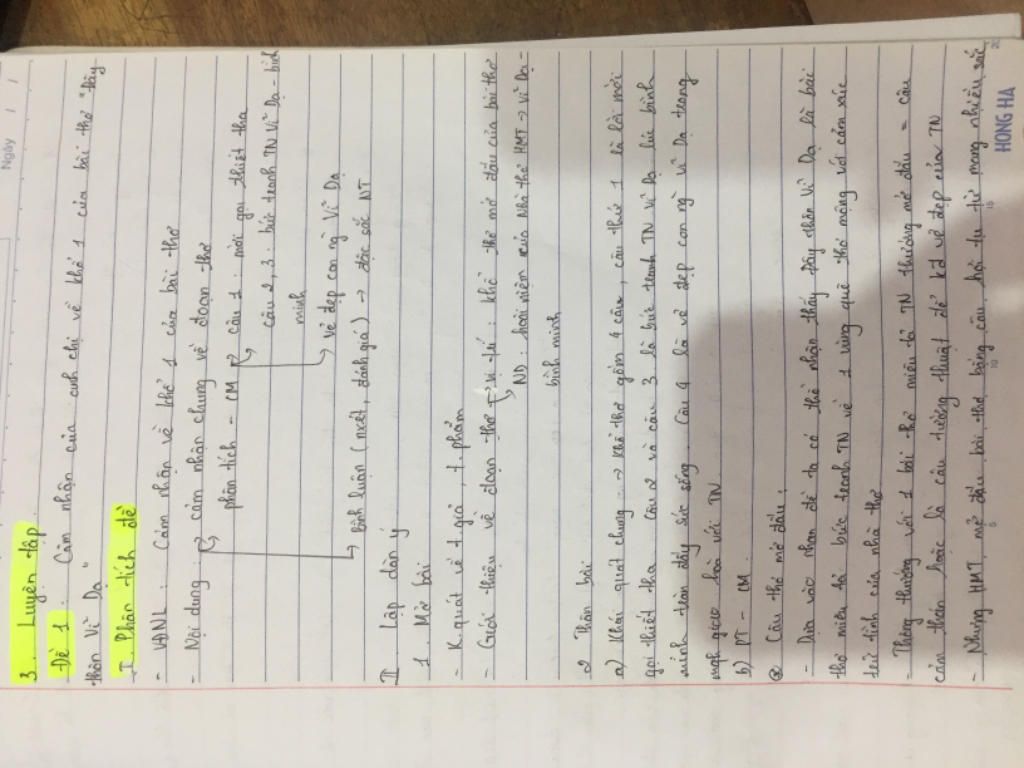 Ngày / /
3. Luyện tập
Đề 1: Cảm nhận của anh chị về khổ 1 của bài thơ "Đây
thôn Vĩ Dạ"
I. Phân tích đề
- VĐNL: Cảm nhận về khổ 1 của bài thơ
- Nội dung: cảm nhận chung về đoạn thơ
phân tích - CM câu 1: mời gọi thiết tha
câu 2, 3: bức tranh TN Vĩ Dạ - bình
minh
Vẻ đẹp con ng Vĩ Dạ
Bình luận (nxét, đánh giá) → đặc sắc NT
II. Lập dàn ý
1. Mở bài
- K. quát về t giả, t. phẩm
- Giới thiệu về đoạn thơ → vị trí: khổ thơ mở đầu của bài thơ
ND: hoài niệm của Nhà thơ HMT → Vĩ Dạ -
bình minh
2 Thân bài
a) Khái quát chung → Khổ thơ gồm 4 câu, câu thứ 1 là lời mời
gọi thiết tha. Câu 2 và câu 3 là bức tranh TN Vĩ Dạ lúc bình
minh tràn đầy sức sống. Câu 4 là vẻ đẹp con ng Vĩ Dạ trong
mqh giao hoà với TN
b) PT - CM
@ Câu thơ mở đầu:
- Dựa vào nhan đề ta có thể nhận thấy Đây thôn Vĩ Dạ là bài
thơ miêu tả bức tranh TN về 1 vùng quê thơ mộng với cảm xúc
trữ tình của nhà thơ
- Thông thường với 1 bài thơ miêu tả TN thường mở đầu = câu
cảm thán hoặc là câu tường thuật để kđ vẻ đẹp của TN
- Nhưng HMT mở đầu bài thơ bằng câu hỏi tu từ mang nhiều sắc
HONG HA
5 10 15 20